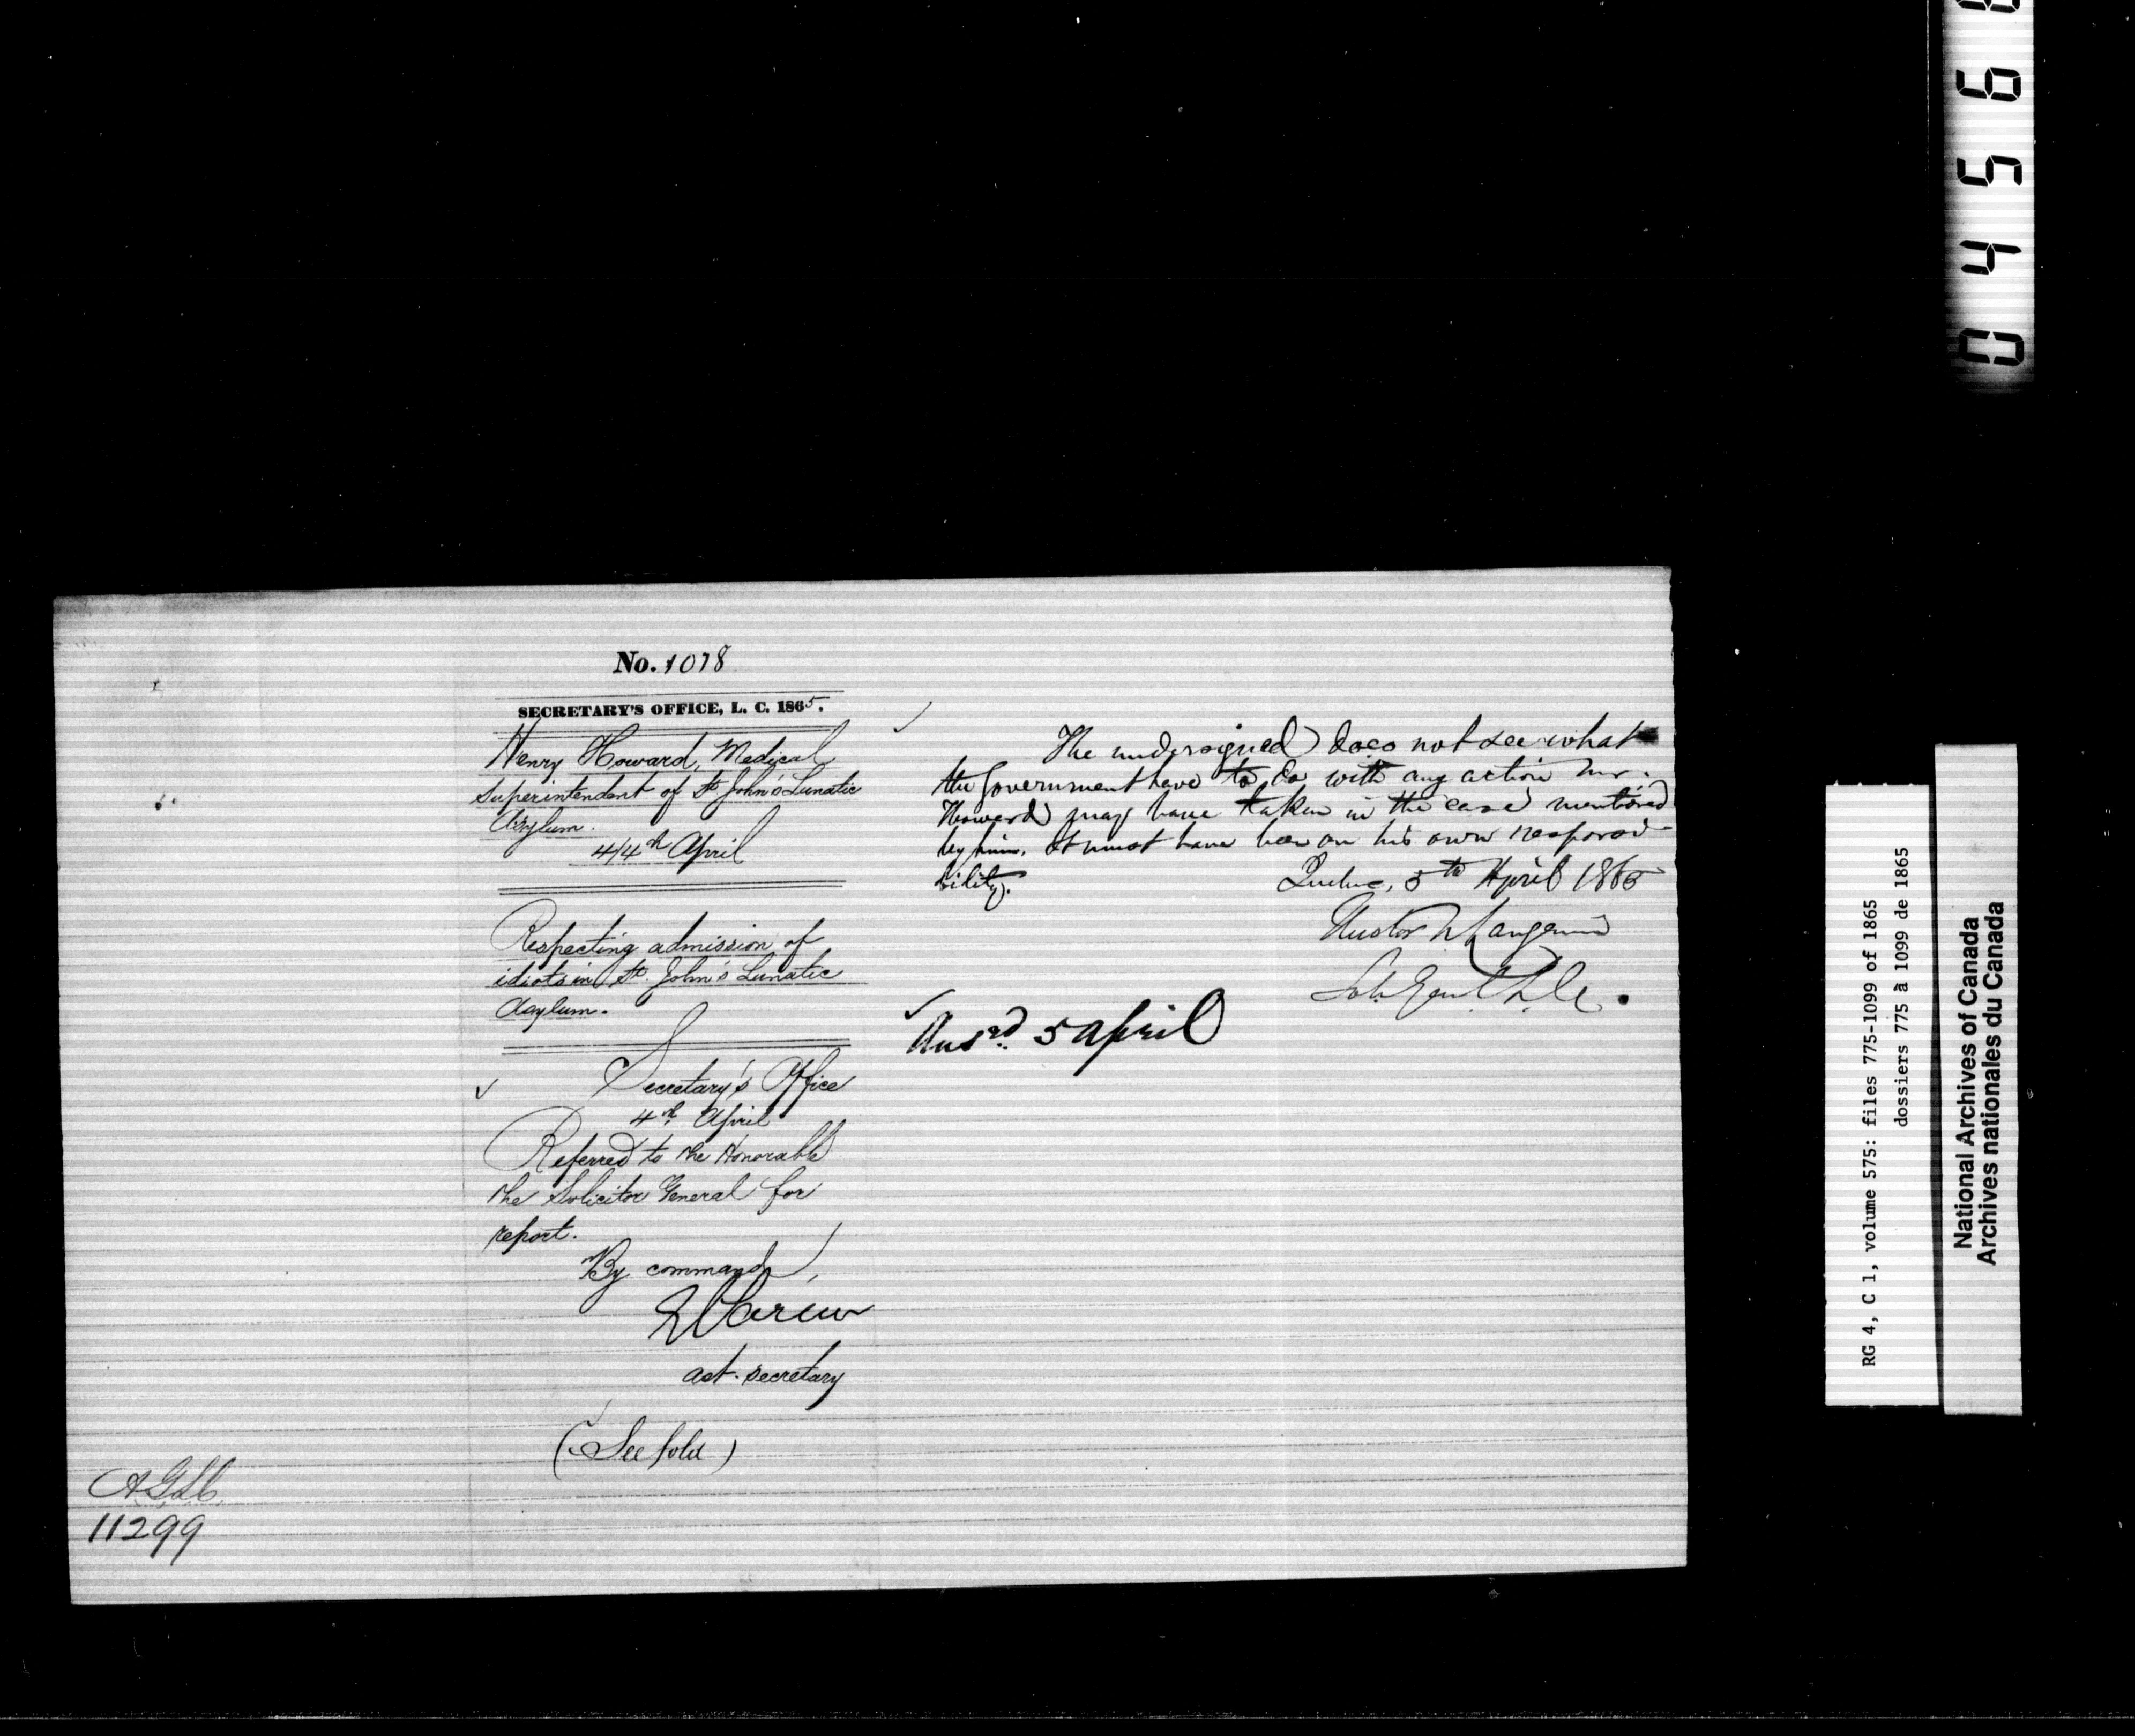 No. 1078
SECRETARY'S OFFICE, L. C. 1865.
Henry Howard, Medical
Superintendent of St John's Lunatic
Asylum.
4/4th April
Respecting admission of
idiots in St. John's Lunatic
Asylum.
Secretary's Office
4th April
Referred to the Honorable
the Solicitor General for
report.
By command,
ast. secretary
(See fold)
A.G.L.C.
11299
The undersigned does not see what
the Government have to do with any action Mr.
Howard may have taken in the case mentioned
by him. It must have been on his own responsi-
bility.
Quebec, 5th April 1865
Hector L. Langevin
Sol. Genl L.C.
Ansrd. 5 April
04598
RG 4, C 1, volume 575: files 775-1099 of 1865
dossiers 775 à 1099 de 1865
National Archives of Canada
Archives nationales du Canada